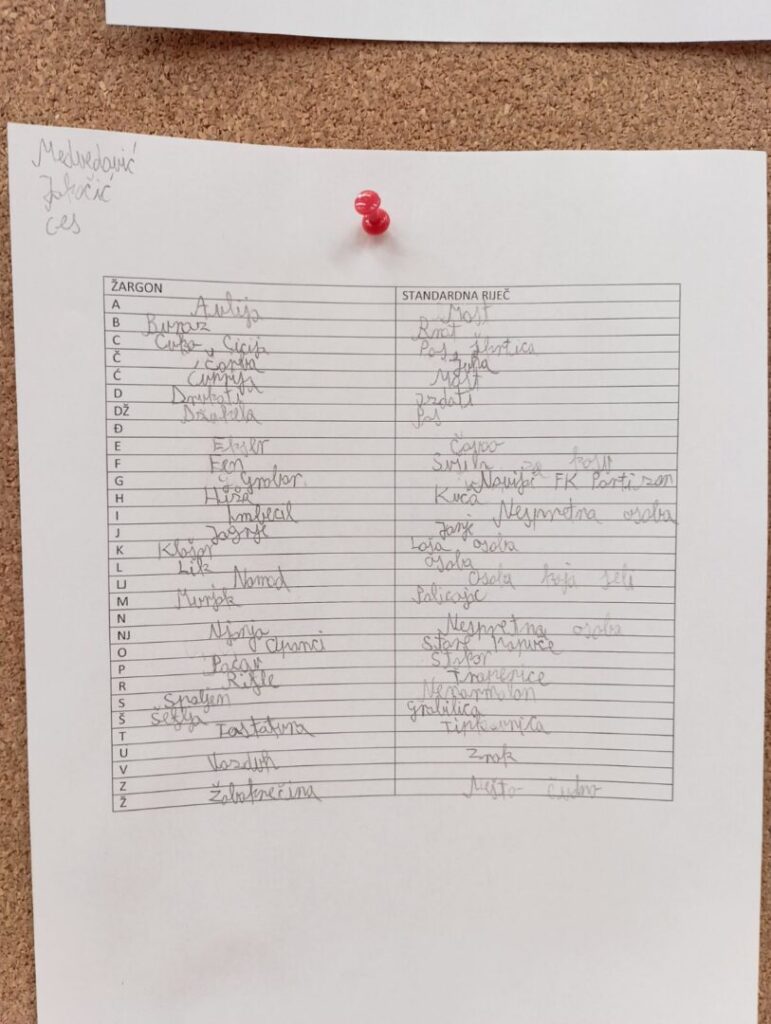 Medvedović
Jakočić
ŽARGON STANDARDNA RIJEČ
A Avlija Most
B Buraz Brat
C Cuko, Cicija Pas, škrtica
Č Čorba Juha
Ć Ćuprija Most
D Drukati Izdati
DŽ Džukela Pas
Đ
E Ekser Čavao
F Fen Sušilo za kosu
G Grobar Navijač FK Partizan
H Hiža Kuća
I Imbecil Nespretna osoba
J Jagnje Janje
K Klošar Loša osoba
L Lik Osoba
LJ Nomad Osoba koja seli
M Murjak Policajac
N
NJ Njonja Nespretna osoba
O Opanci Stare papuče
P Pacov Štakor
R Rifle Traperice
S Spaljen Nenormalan
Š Šeflja Grabilica
T Tastatura Tipkovnica
U
V Vazduh Zrak
Z
Ž Žabokrečina Nešto čudno